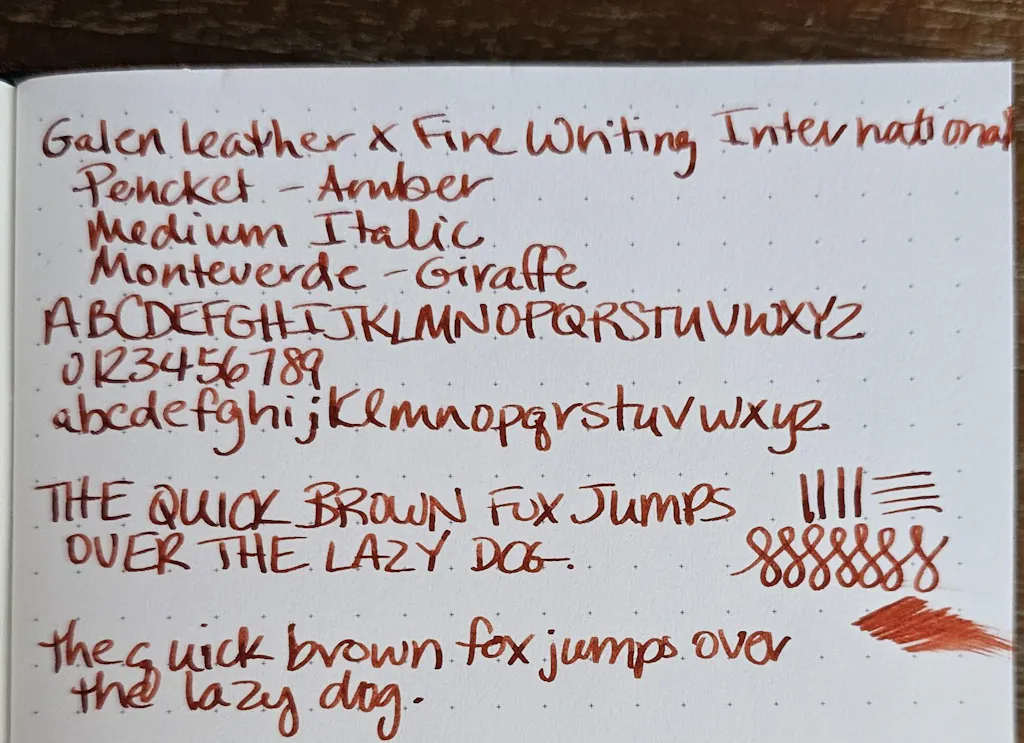 Galen Leather x Fine Writing International
Pencket - Amber
Medium Italic
Monteverde - Giraffe
ABCDEFGHIJKLMNOPQRSTUVWXYZ
0123456789
abcdefghijklmnopqrstuvwxyz
THE QUICK BROWN FOX JUMPS
OVER THE LAZY DOG.
the quick brown fox jumps over
the lazy dog.